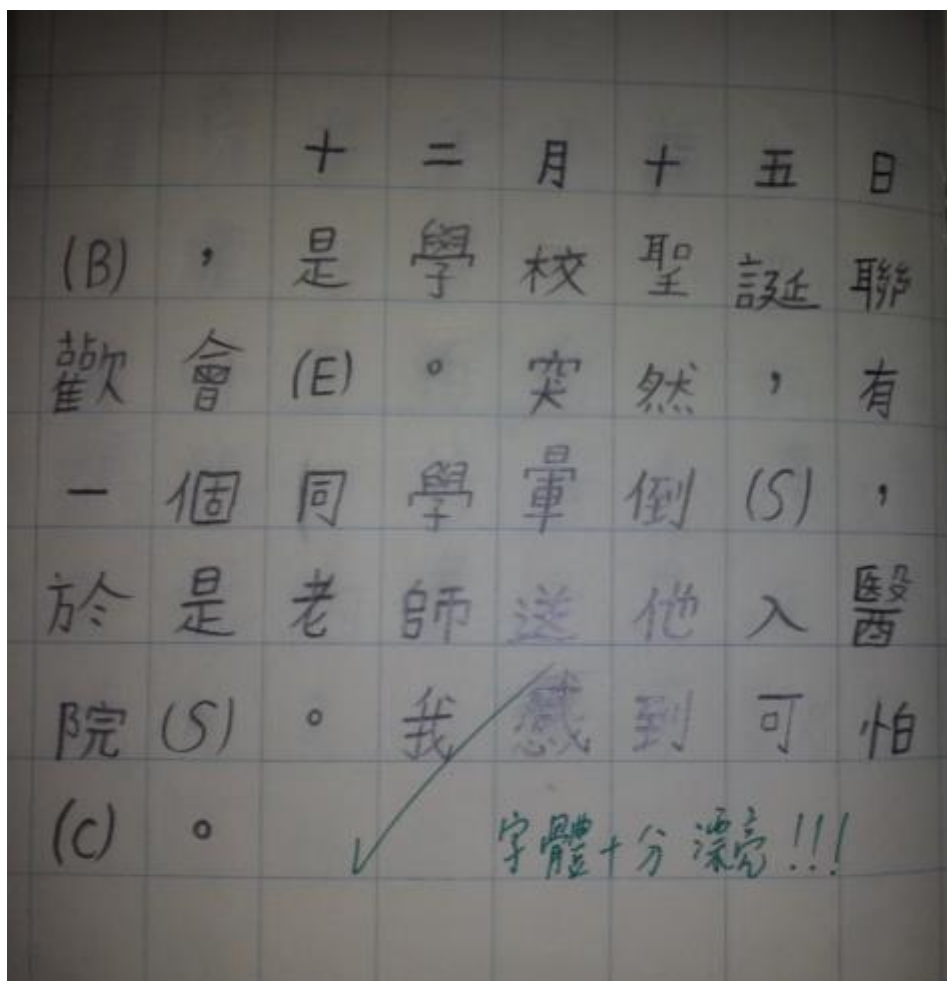 十二月十五日
(B)，是學校聖誕聯
歡會(E)。突然，有
一個同學暈倒(S)，
於是老師送他入醫
院(S)。我感到可怕
(C)。
字體十分漂亮!!!